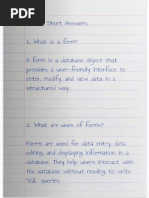 Short Answers:
1. What is a form?
A form is a database object that
provides a user-friendly interface to
enter, modify, and view data in a
structured way.
2. What are uses of forms?
Forms are used for data entry, data
editing, and displaying information in a
database. They help users interact with
the database without needing to write
SQL queries.